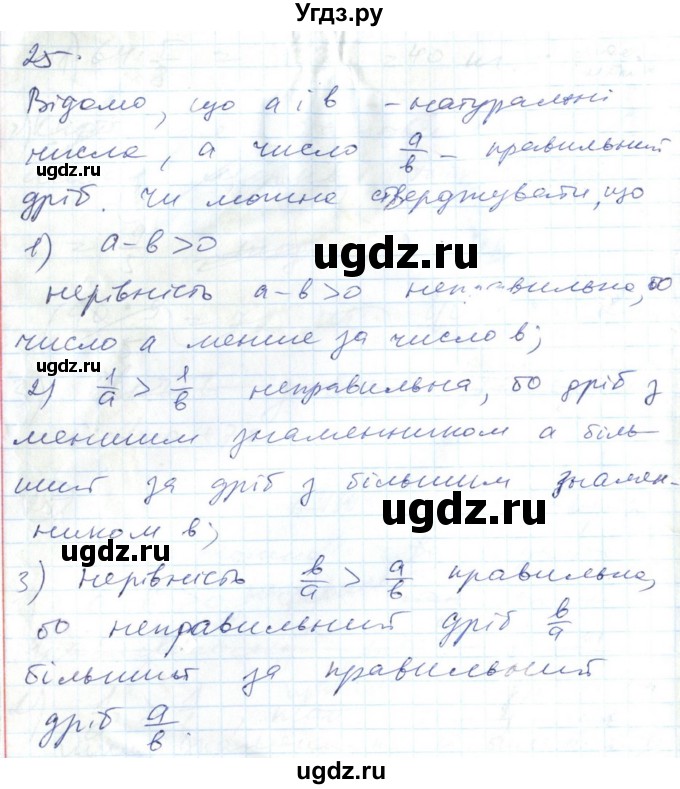 Угдз.ру
25.
Відомо, що a і в - натуральні
числа, а число a/в - правильний
ugdz.ru
дріб. Чи можна стверджувати, що
ugdz.ru
1) a-в>0
ugdz.ru
нерівність a-в>0 неправильна, бо
число a менше за число в;
ugdz.ru
2) 1/a > 1/в неправильна, бо дріб з
меншим знаменником a біль-
ший за дріб з більшим знамен-
ugdz.ru
ником в;
ugdz.ru
3) нерівність в/a > a/в правильна,
бо неправильний дріб в/a
ugdz.ru
більший за правильний
ugdz.ru
дріб a/в.
ugdz.ru